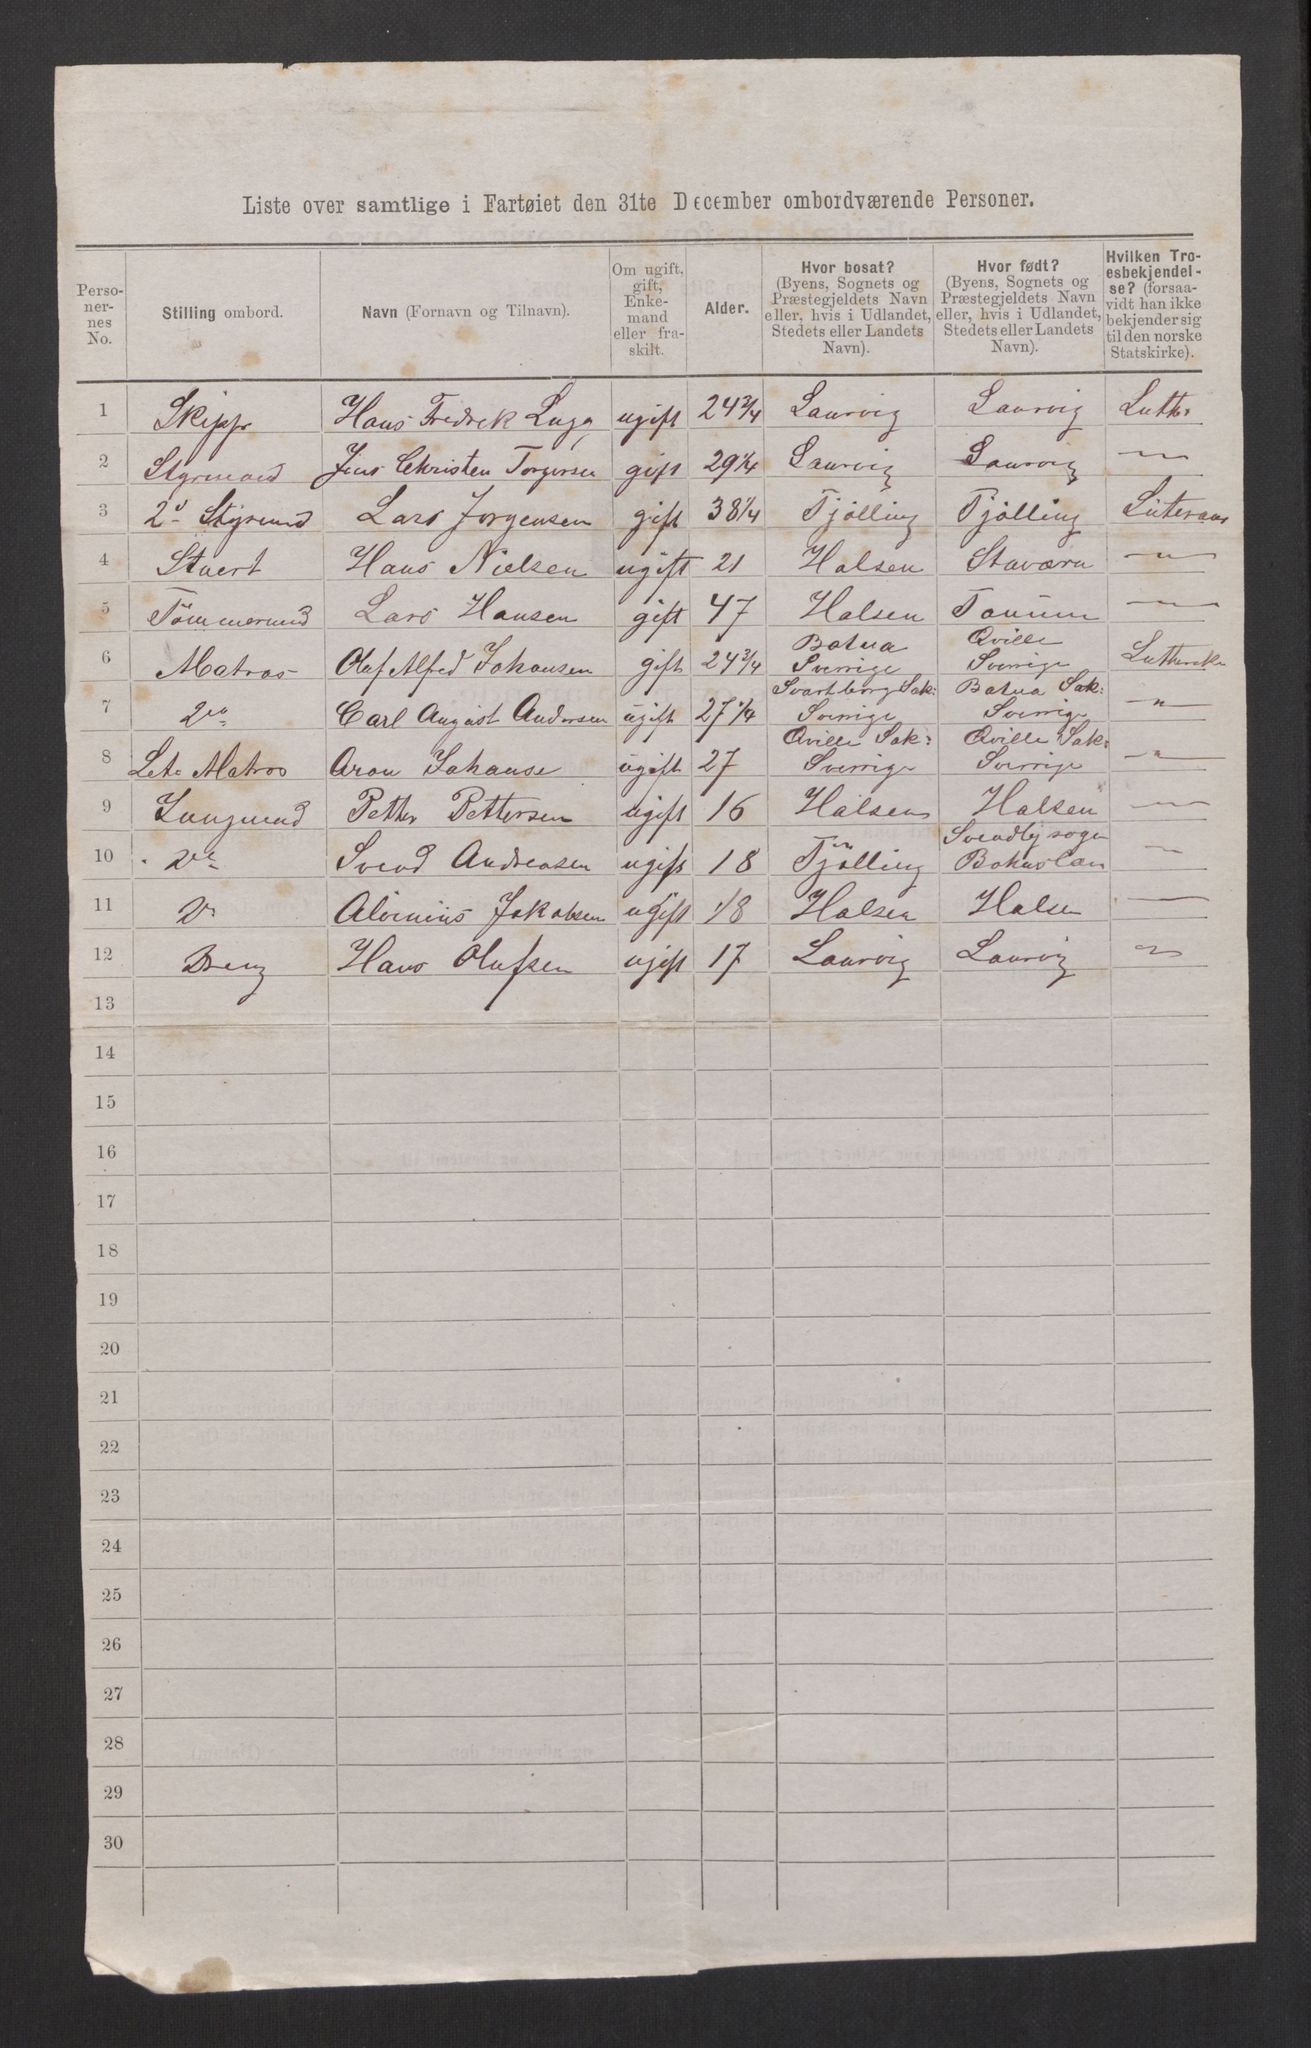 Liste over samtlige i Fartøiet den 31te December ombordværende Personer.
Perso-
ner-
nes
No.
Stilling ombord.
Navn (Fornavn og Tilnavn).
Om ugift,
gift,
Enke-
mand
eller fra-
skilt.
Alder.
Hvor bosat?
(Byens, Sognets og
Præstegjeldets Navn
eller, hvis i Udlandet,
Stedets eller Landets
Navn).
Hvor født?
(Byens, Sognets og
Præstegjeldets Navn
eller, hvis i Udlandet,
Stedets eller Landets
Navn).
Hvilken Tro-
esbekjendel-
se? (forsaa-
vidt han ikke
bekjender sig
til den norske
Statskirke).
1 Skippr Hans Fredrek ugift 24 3/4 Laurvig Laurvig Luthr
2 Styrmand Jens Christen Torgersen gift 29 1/4 Laurvig Laurvig "
3 2d Styrmnd Lars Jorgensen gift 38 1/4 Tjölling Tjölling Luterans
4 Stuert Hans Nielsen ugift 21 Halsen Staværn "
5 Tömmermnd Lars Hansen gift 47 Halsen Tanum "
6 Matros Olaf Alfred Johansen gift 24 3/4 Batna Sverrige Qville Sverrige Lutherske
7 Carl August Andersen ugift 27 1/4 Svartborg Sok: Sverrige Batna Sok: Sverrige "
8 Let. Matros Aron Johanse ugift 27 Qville Sok: Sverrige Qville Sok: Sverrige "
9 Jungmnd Petter Pettersen ugift 16 Halsen Halsen "
10 Do Svend Andreasen ugift 18 Tjölling Svendby sogn Bohuslan "
11 Do Jakobsen ugift 18 Halsen Halsen "
12 Dreng Hans Olufsen ugift 17 Laurvig Laurvig "
13
14
15
16
17
18
19
20
21
22
23
24
25
26
27
28
29
30